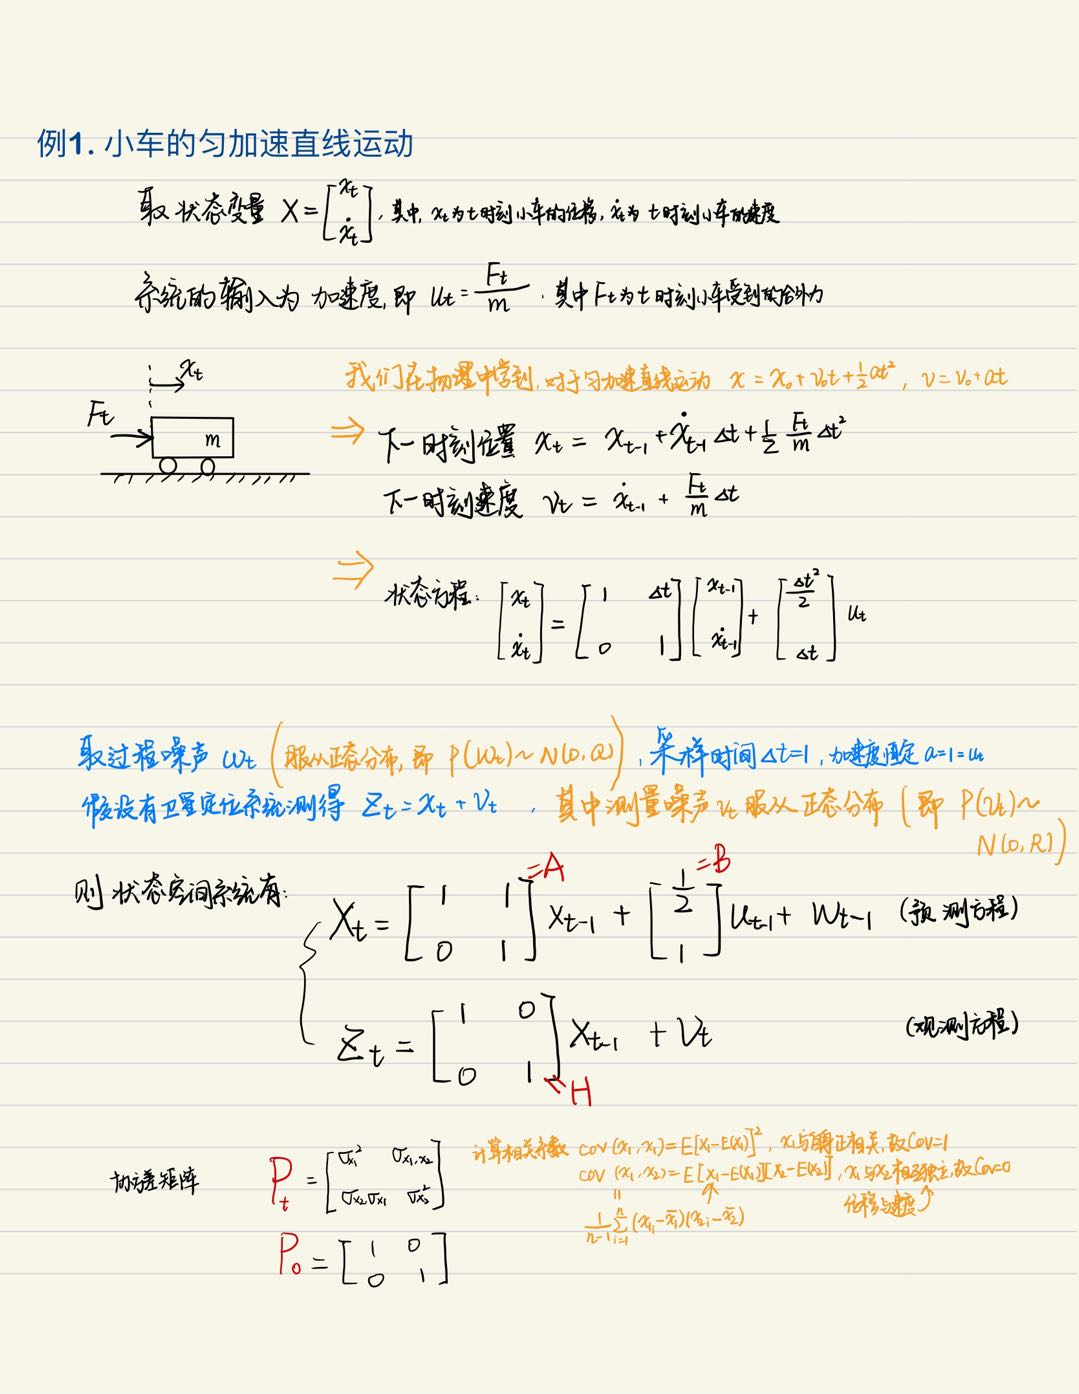 例1. 小车的匀加速直线运动
取状态变量 X = [x_t ẋ_t], 其中, x_t为t时刻小车的位移, ẋ_t为 t时刻小车的速度
系统的输入为 加速度, 即 u_t = F_t/m . 其中F_t为t时刻小车受到的合外力
x_t
F_t
m
我们在物理中学到, 对于匀加速直线运动 x = x₀ + v₀t + ½at², v = v₀ + at
⇒ 下一时刻位置 x_t = x_{t-1} + ẋ_{t-1} Δt + ½ F_t/m Δt²
下一时刻速度 v_t = ẋ_{t-1} + F_t/m Δt
⇒ 状态方程: [x_t; ẋ_t] = [1 Δt; 0 1] [x_{t-1}; ẋ_{t-1}] + [Δt²/2; Δt] u_t
取过程噪声 w_t (服从正态分布, 即 P(w_t)~N(0,Q)), 采样时间 Δt=1, 加速度恒定 a=1=u_t
假设有卫星定位系统测得 Z_t = x_t + v_t , 其中测量噪声 v_t 服从正态分布 (即 P(v_t)~
N(0,R))
则状态空间系统有:
X_t = [1 1; 0 1] X_{t-1} + [1/2; 1] u_{t-1} + w_{t-1} (预测方程)
=A
=B
Z_t = [1 0; 0 1] X_{t-1} + v_t (观测方程)
H
协方差矩阵
P_t = [σ_{x₁}² σ_{x₁,x₂}; σ_{x₂}σ_{x₁} σ_{x₂}²]
计算相关系数 cov(x₁,x₁) = E[x₁-E(x₁)]², x₁与 正相关, 故Cov=1
cov(x₁,x₂) = E[x₁-E(x₁)][x₂-E(x₂)], x₁与x₂相互独立, 故Cov=0
位移与速度
= 1/(n-1) Σ_{i=1}^{n} (x_{1i}-x̄₁)(x_{2i}-x̄₂)
P₀ = [1 0; 0 1]